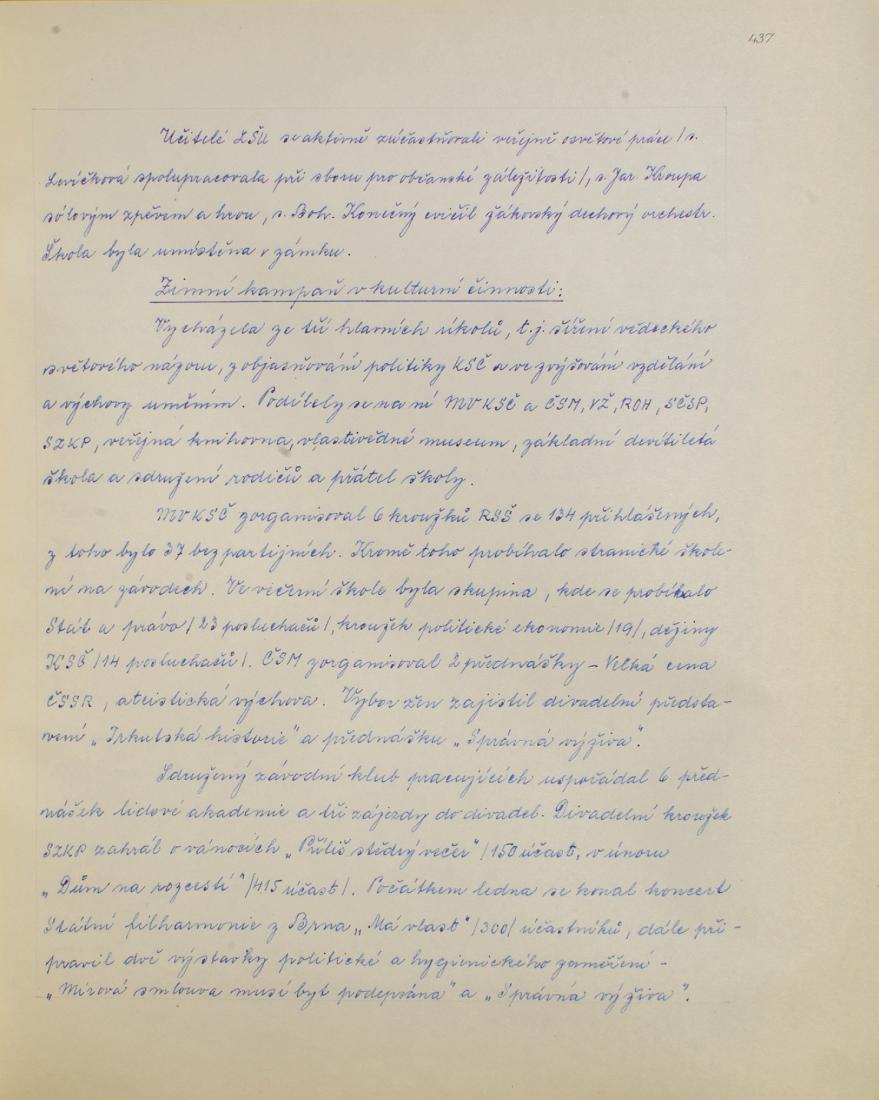 437
Učitelé LŠU se aktivně zúčastňovali veřejně osvětové práce /s.
Levíčková spolupracovala při sboru pro občanské záležitosti/, s. Jar. Kroupa
sólovým zpěvem a hrou, s. Boh. Konečný cvičil žákovský dechový orchestr.
Škola byla umístěna v zámku.
Zimní kampaň v kulturní činnosti:
Vycházela ze tří hlavních úkolů, t.j. šíření vědeckého
světového názoru, z objasňování politiky KSČ a ve zvyšování vzdělání
a výchovy uměním. Podílely se na ní MV KSČ a ČSM, VŽ, ROH, SČSP,
SZKP, veřejná knihovna, vlastivědné museum, základní devítiletá
škola a sdružení rodičů a přátel školy.
MV KSČ zorganisoval 6 kroužků RSŠ se 134 přihlášených,
z toho bylo 37 bezpartijních. Kromě toho probíhalo stranické škole-
ní na závodech. Ve večerní škole byla skupina, kde se probíralo
Stát a právo /23 posluchačů/, kroužek politické ekonomie /19/, dějiny
KSČ /14 posluchačů/. ČSM zorganisoval 2 přednášky - Velká cena
ČSSR, ateistická výchova. Výbor žen zajistil divadelní předsta-
vení „Irkutská historie" a přednášku „Správná výživa".
Sdružený závodní klub pracujících uspořádal 6 před-
nášek lidové akademie a tři zájezdy do divadel. Divadelní kroužek
SZKP zahrál o vánocích „Příliš štědrý večer" /150 účast, v únoru
„Dům na rozcestí" /415 účast/. Počátkem ledna se konal koncert
Státní filharmonie z Brna „Má vlast" /300/ účastníků, dále při-
pravil dvě výstavky politické a hygienického zaměření -
„Mírová smlouva musí být podepsána" a „Správná výživa".